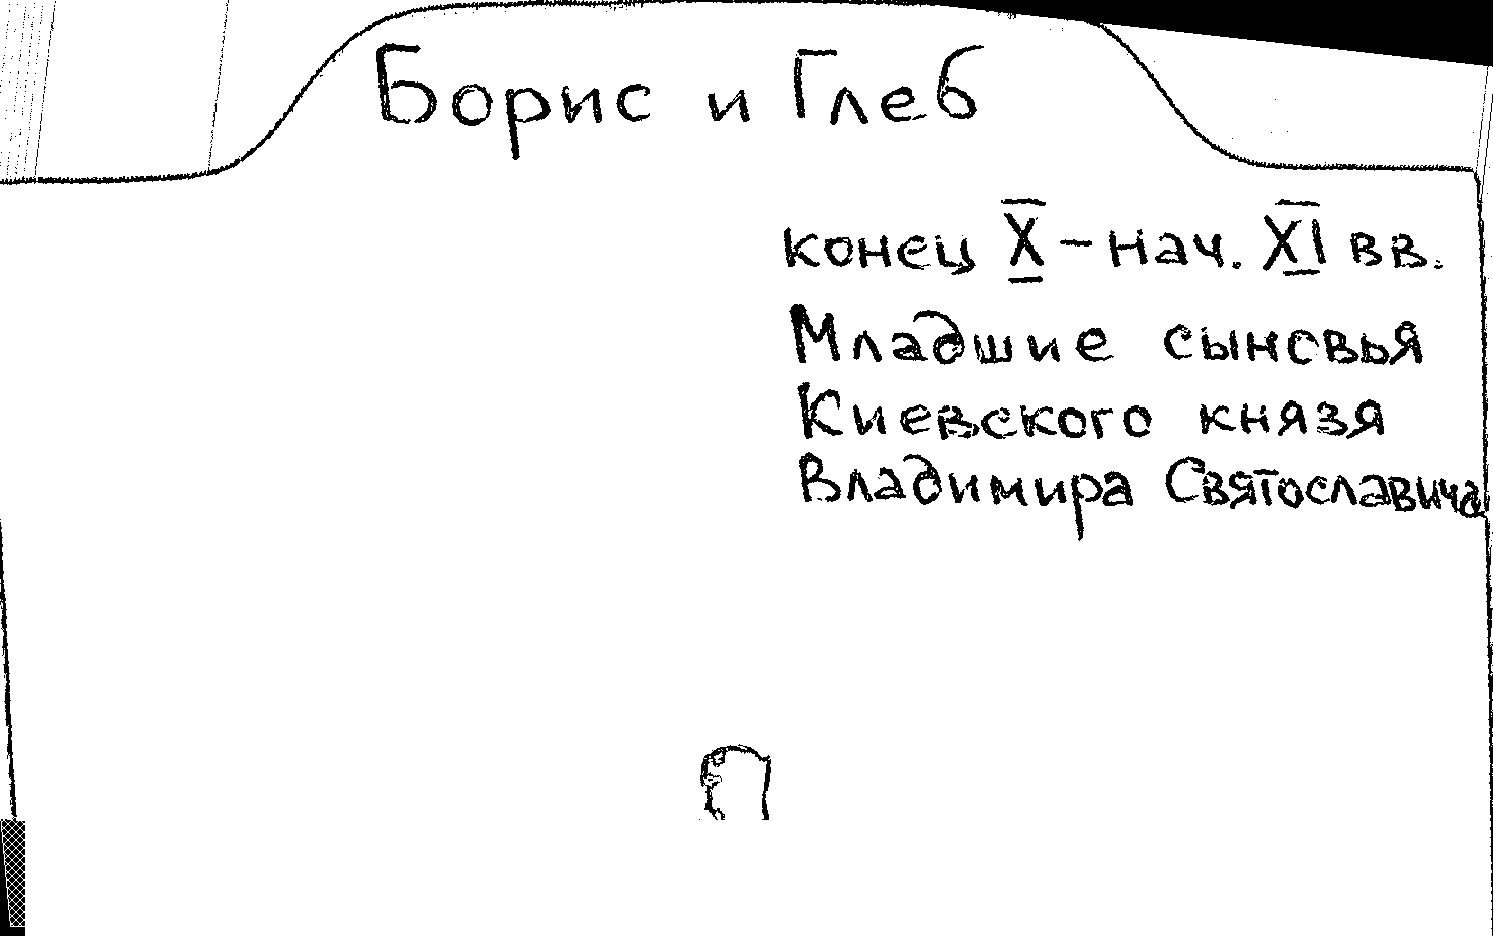 Борис и Глеб
конец X - нач. XI вв.
Младшие сыновья
Киевского князя
Владимира Святославича